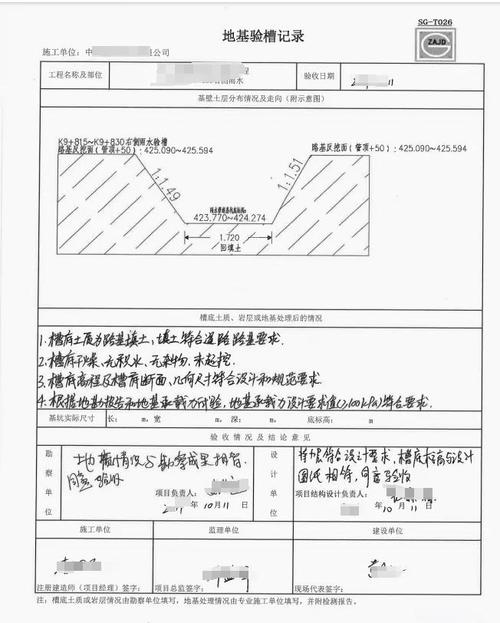 SG-T026
地基验槽记录
ZAJD
施工单位:中 公司
工程名称及部位
验收日期
基壁土层分布情况及走向(附示意图)
K9+815~K9+830右侧雨水验槽
路基反挖面(管顶+50):425.090~425.594
路基反挖面(管顶+50):425.090~425.594
1:1.49
1:1.51
423.770~424.274
1.720
回填土
槽底土质、岩层或地基处理后的情况
1.槽底土质为路基填土,填土符合道路路基要求.
2.槽底干燥、无积水、无杂物,未超挖.
3.槽底高程及槽底断面、几何尺寸符合设计和规范要求
4.根据地勘报告和地基承载力试验,地基承载力设计要求值(≥100kPa)符合要求.
基坑实际尺寸 长: m,宽 m, 深: m, 底标高: m
验收情况及结论意见
勘察单位
地基情况与勘察成果相符
同意验收
项目负责人:
年10月11日
设计单位
持力层符合设计要求,槽底标高与设计
图纸相符,同意验收
项目结构设计负责人:
年10月11日
施工单位
监理单位
建设单位
注册建造师(项目经理)签字:
项目总监签字:
现场代表签字:
注:槽底土质或岩层情况由勘察单位填写,地基处理情况由专业施工单位填写,并附检测报告。